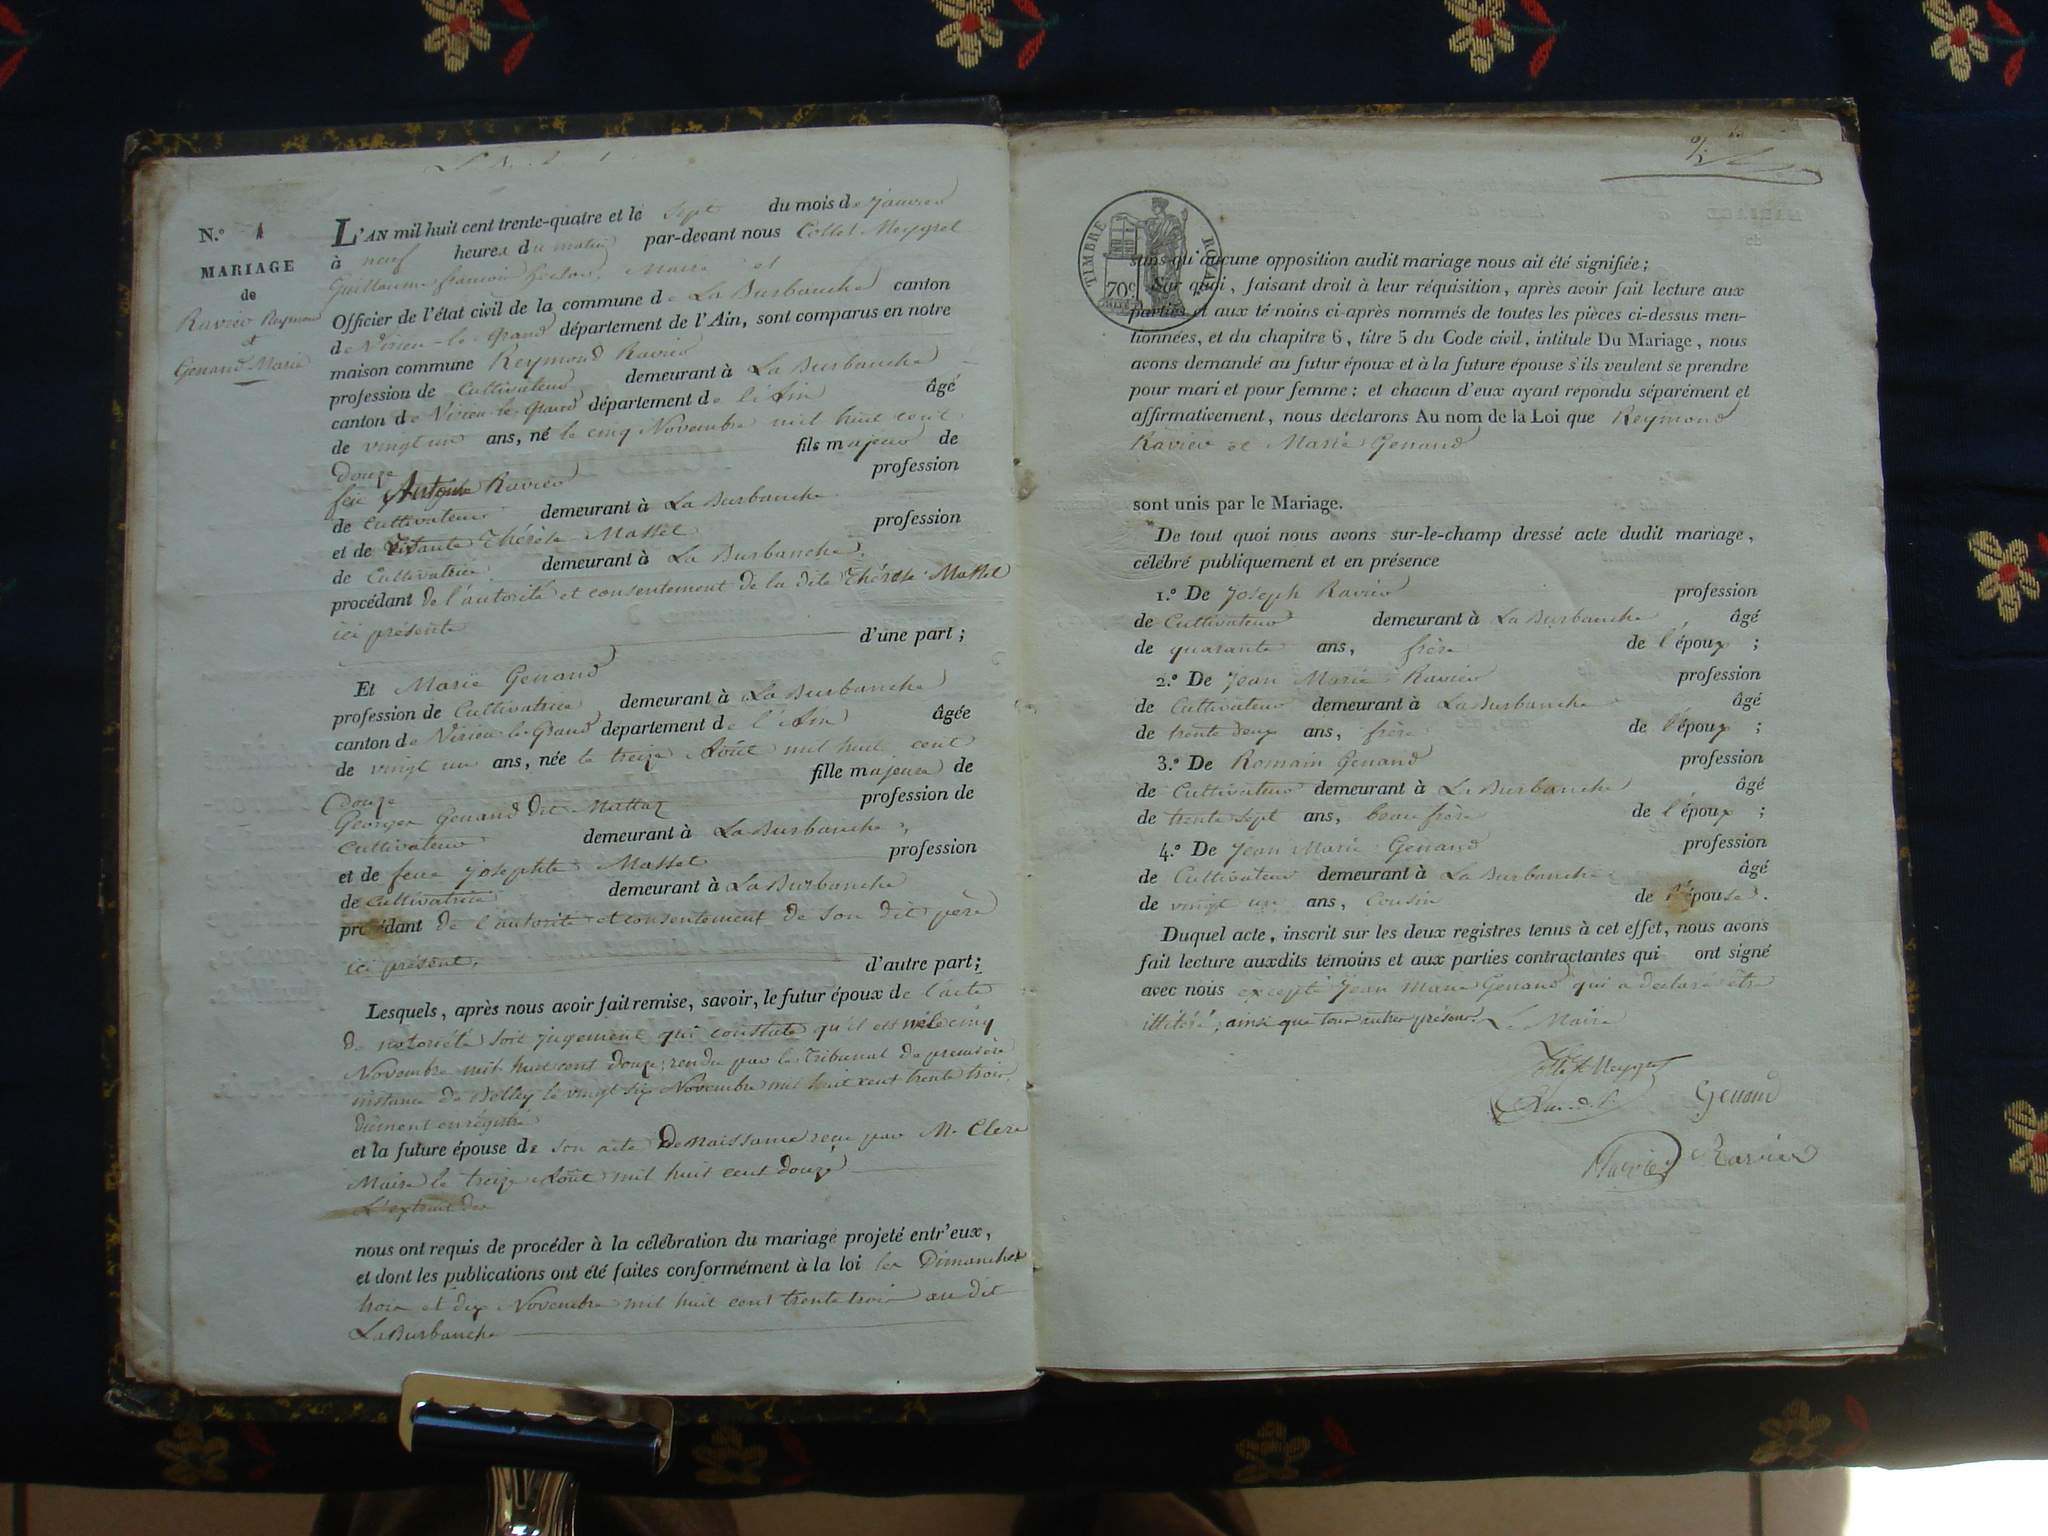 N.° 1
MARIAGE
de
Ravier Reymond
et
Genand Marie
L'AN mil huit cent trente-quatre et le sept du mois de Janvier
à neuf heures du matin par-devant nous Collet Meygret
Guillaume françois Maire et
Officier de l'état civil de la commune de La Burbanche canton
de Virieu-le-Grand département de l'Ain, sont comparus en notre
maison commune Reymond Ravier
profession de Cultivateur demeurant à La Burbanche
canton de Virieu-le-Grand département de l'Ain âgé
de vingt un ans, né le cinq Novembre mil huit cent
douze fils majeur de
feu Antoine Ravier profession
de Cultivateur demeurant à La Burbanche
et de vivante Thérèse Masset profession
de Cultivatrice demeurant à La Burbanche.
procédant de l'autorité et consentement de la dite Thérèse Masset
ici présente d'une part ;
Et Marie Genand
profession de Cultivatrice demeurant à La Burbanche
canton de Virieu-le-Grand département de l'Ain âgée
de vingt un ans, née le treize Août mil huit cent
douze fille majeure de
George Genand dit Mattaz profession de
Cultivateur demeurant à La Burbanche,
et de feue Josephte Masset profession
de Cultivatrice demeurant à La Burbanche
procédant de l'autorité et consentement de son dit père
ici présent. d'autre part ;
Lesquels, après nous avoir fait remise, savoir, le futur époux de l'acte
de notoriété soit jugement qui constate qu'il est né le cinq
Novembre mil huit cent douze, rendu par le Tribunal de première
instance de Belley le vingt six Novembre mil huit cent trente trois,
dûement enregistré
et la future épouse de son acte de Naissance reçu par Mr Clerc
Maire le treize Août mil huit cent douze
L'extrait des
nous ont requis de procéder à la célébration du mariage projeté entr'eux,
et dont les publications ont été faites conformément à la loi les Dimanches
trois et dix Novembre mil huit cent trente trois au dit
La Burbanche
TIMBRE ROYAL
70c
sans qu'aucune opposition audit mariage nous ait été signifiée ;
Sur quoi, faisant droit à leur réquisition, après avoir fait lecture aux
parties et aux témoins ci-après nommés de toutes les pièces ci-dessus men-
tionnées, et du chapitre 6, titre 5 du Code civil, intitulé Du Mariage, nous
avons demandé au futur époux et à la future épouse s'ils veulent se prendre
pour mari et pour femme ; et chacun d'eux ayant répondu séparément et
affirmativement, nous déclarons Au nom de la Loi que Reymond
Ravier et Marie Genand
sont unis par le Mariage.
De tout quoi nous avons sur-le-champ dressé acte dudit mariage,
célébré publiquement et en présence
1.° De Joseph Ravier profession
de Cultivateur demeurant à La Burbanche âgé
de quarante ans, frère de l'époux ;
2.° De Jean Marie Ravier profession
de Cultivateur demeurant à La Burbanche âgé
de trente deux ans, frère de l'époux ;
3.° De Romain Genand profession
de Cultivateur demeurant à La Burbanche âgé
de trente sept ans, beau frère de l'époux ;
4.° De Jean Marie Genand profession
de Cultivateur demeurant à La Burbanche âgé
de vingt un ans, Cousin de l'épouse.
Duquel acte, inscrit sur les deux registres tenus à cet effet, nous avons
fait lecture auxdits témoins et aux parties contractantes qui ont signé
avec nous excepté Jean Marie Genand qui a déclaré être
illitéré, ainsi que tous autres présens. Le Maire
Collet Meygret
Genand
Ravier Ravier